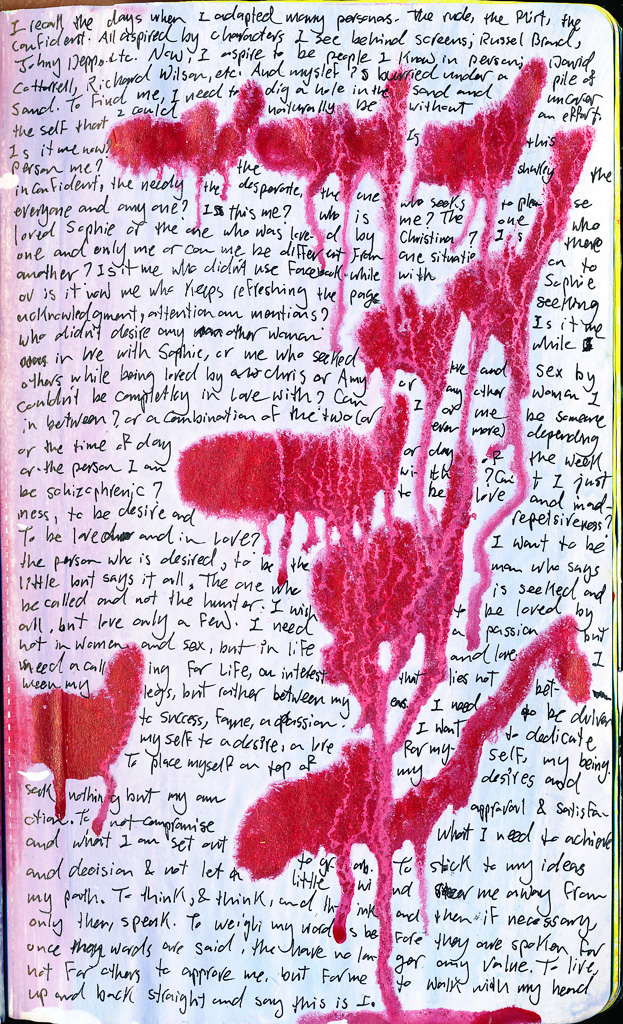 I recall the days when I adapted many personas. The rude, the flirt, the
Confident. All aspired by characters I see behind screens; Russel Brand,
Johny Depp etc. Now, I aspire to be people I know, in person; David
Cottarell, Richard Wilson, etc. And myself is burried under a pile of
Sand. To find me, I need to dig a hole in the sand and uncover
the self that I could naturally be without an effort.
Is it me now? Is this
person me? the shaky the
inconfident, the needy the desperate, the one who seeks to please
everyone and any one? Is this me? who is me? The one who
loved Sophie or the one who was loved by Christina? Is there
one and only me or can me be different from one situation to
another? Is it me who didn't use Facebook while with Sophie
or is it now me who keeps refreshing the page seeking
acknowledgment, attention and mentions? Is it me
who didn't desire any other woman while
in love with Sophie, or me who seeked love and sex by
others while being loved by Chris or Amy or any other woman I
couldn't be completley in love with? Can I or me be someone
in between? or a combination of the two (or even more) depending
or the time of day or day of the week
or the person I am with? Can't I just
be schizophrenic? to be love and mad-
ness, to be desire and repetsiveness?
To be loved and in love? I want to be
the person who is desired, to be the man who says
little but says it all, The one who is seeked and
be called and not the hunter. I wish to be loved by
all, but love only a few. I need a passion, but
not in women and sex, but in life and love. I
need a calling for life, an interest that lies not bet-
ween my legs, but rather between my ears. I need to be driven
to success, fame, a passion. I want to dedicate
my self to a desire, a love for my self, my being.
To place myself on top of my desires and
seek nothing but my own approval & satisfa-
ction. To not compromise what I need to achieve
and what I am set out to grab. To stick to my ideas
and decision & not let a little wind steer me away from
my path. To think, & think, and think and then if necessary,
only then, speak. To weigh my words before they are spoken for
once words are said, the have no longer any value. To live,
not for others to approve me, but for me to walk with my head
up and back straight and say this is I.